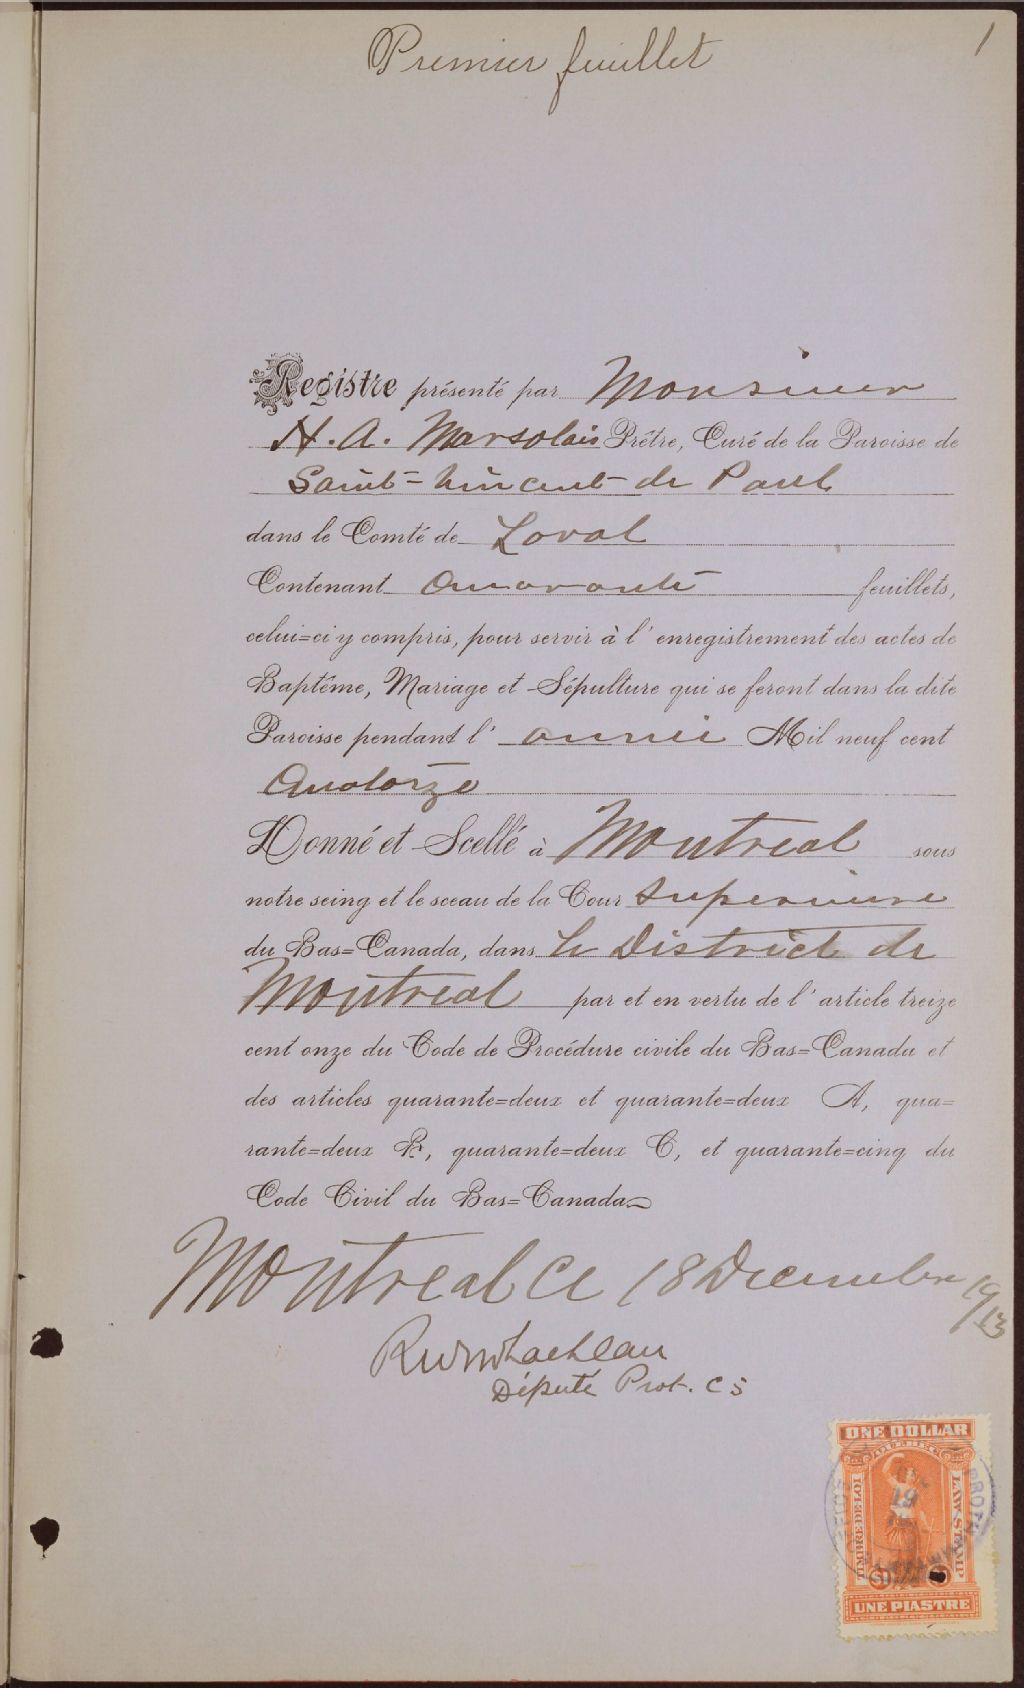 Premier feuillet
1
Registre présenté par Monsieur
H. A. Marsolais Prêtre, Curé de la Paroisse de
Saint=Vincent de Paul
dans le Comté de Laval
Contenant Quarante feuillets,
celui=ci y compris, pour servir à l'enregistrement des actes de
Baptême, Mariage et Sépulture qui se feront dans la dite
Paroisse pendant l'année Mil neuf cent
Quatorze
Donné et Scellé à Montreal sous
notre seing et le sceau de la Cour Superieure
du Bas=Canada, dans le District de
Montreal par et en vertu de l'article treize
cent onze du Code de Procédure civile du Bas=Canada et
des articles quarante=deux et quarante=deux A, qua=
rante=deux B, quarante=deux C, et quarante=cinq du
Code Civil du Bas=Canada
Montreal ce 18 Decembre 1913
Député Prot. C S
ONE DOLLAR
QUEBEC
TIMBRE DE LOI
LAW STAMP
19
$1
UNE PIASTRE